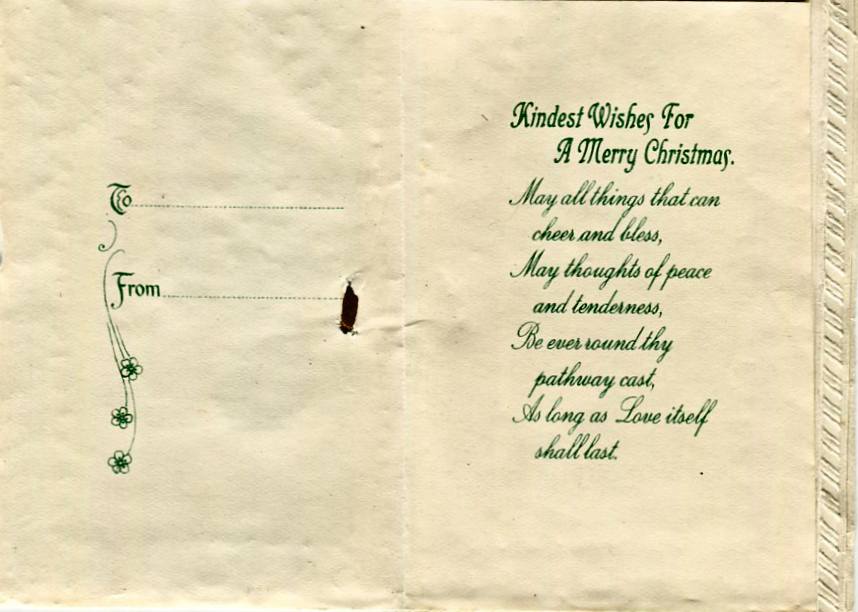 To
From
Kindest Wishes For
A Merry Christmas.
May all things that can
cheer and bless,
May thoughts of peace
and tenderness,
Be ever round thy
pathway cast,
As long as Love itself
shall last.